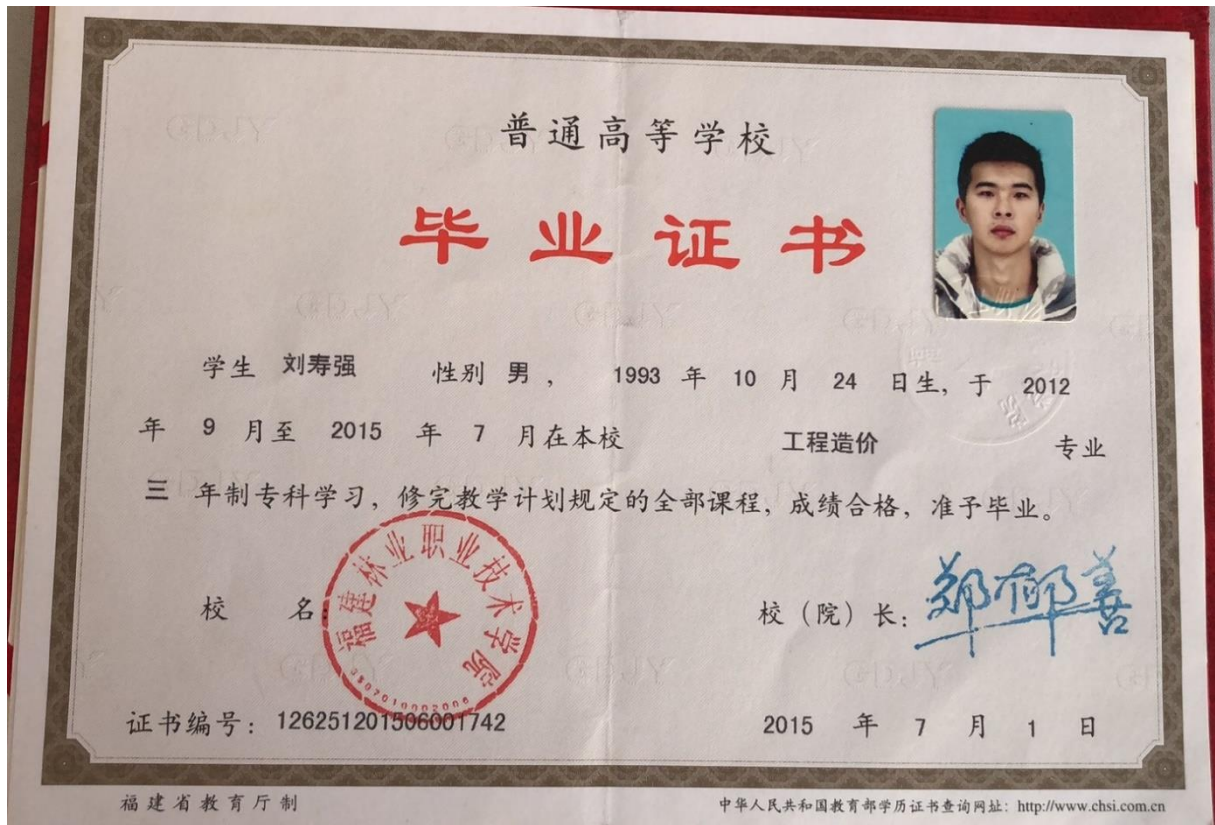 普通高等学校
毕业证书
学生 刘寿强 性别 男 ， 1993 年 10 月 24 日生，于 2012
年 9 月至 2015 年 7 月在本校 工程造价 专业
三 年制专科学习，修完教学计划规定的全部课程，成绩合格，准予毕业。
福建林业职业技术学院
校 名：
校（院）长：郑郁善
3507010002006
证书编号：126251201506001742
2015 年 7 月 1 日
福建省教育厅制
中华人民共和国教育部学历证书查询网址：http://www.chsi.com.cn